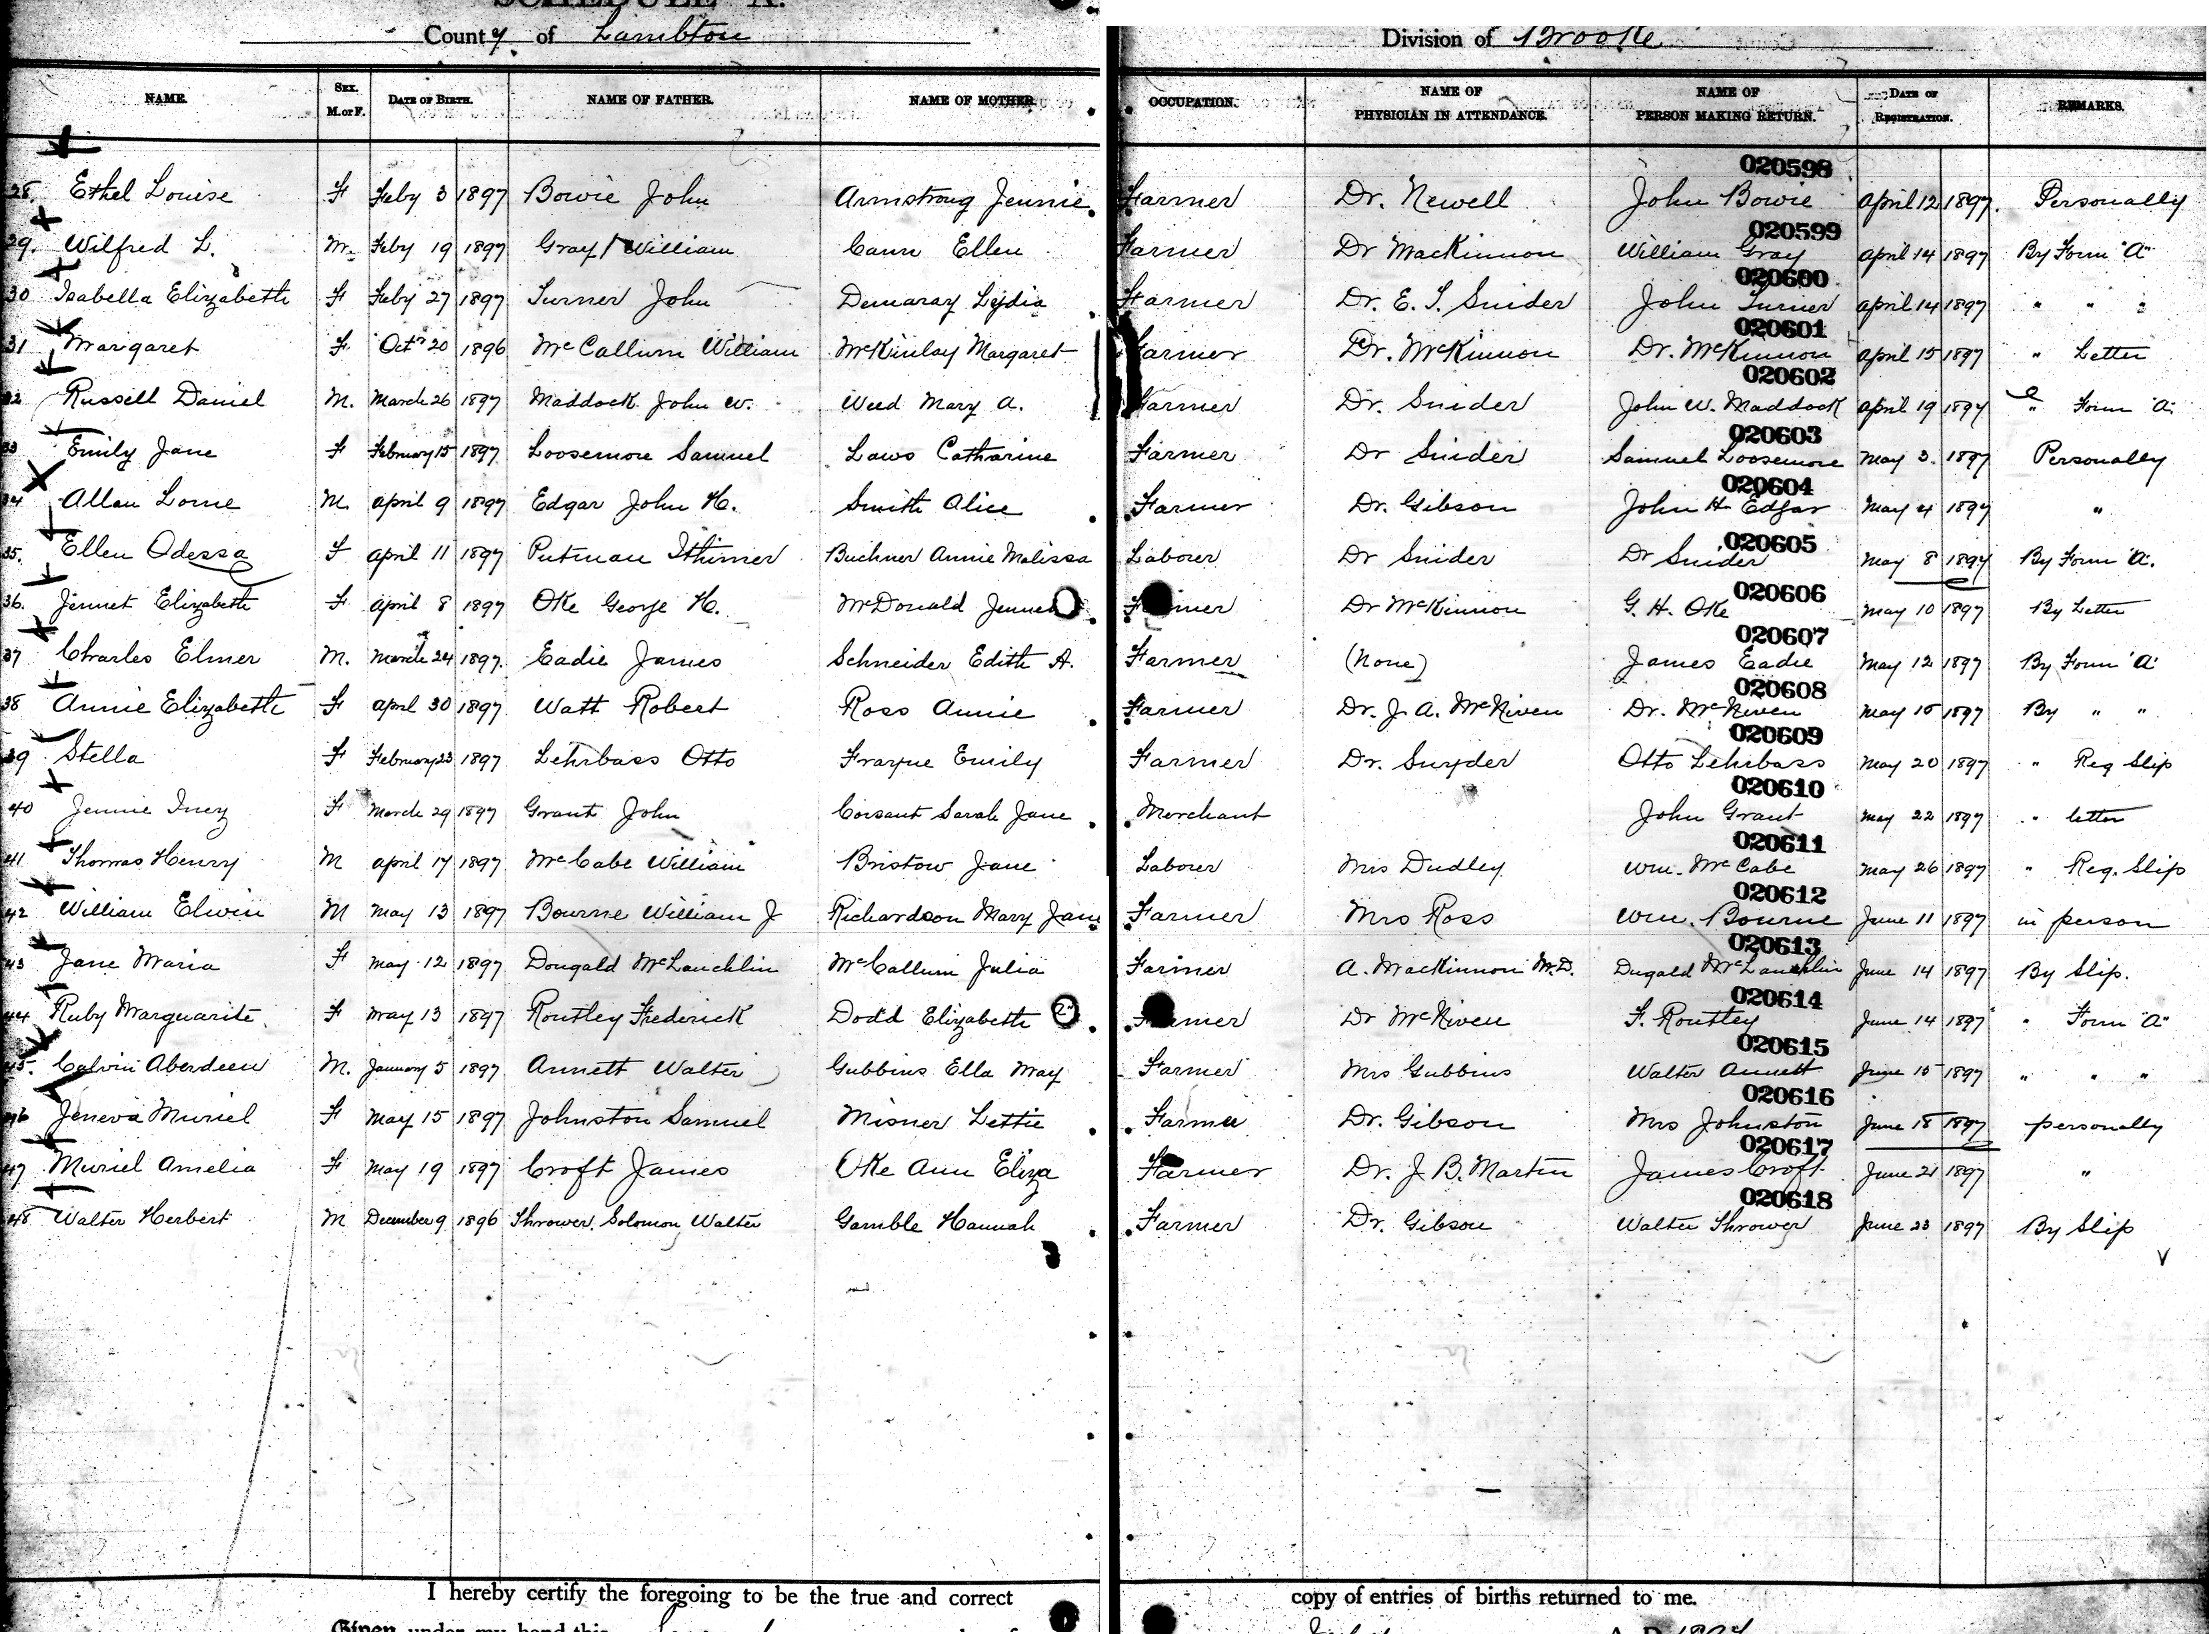 SCHEDULE A.
County of Lambton Division of Brooke
NAME. SEX. M. or F. DATE OF BIRTH. NAME OF FATHER. NAME OF MOTHER. OCCUPATION. NAME OF PHYSICIAN IN ATTENDANCE. NAME OF PERSON MAKING RETURN. DATE OF REGISTRATION. REMARKS.
020598
28. Ethel Louise F Feby 3 1897 Bowie John Armstrong Jennie Farmer Dr. Newell John Bowie April 12 1897. Personally
020599
29. Wilfred L. M. Feby 19 1897 Gray William Cann Ellen Farmer Dr MacKinnon William Gray April 14 1897 By Form "A"
020600
30 Isabella Elizabeth F Feby 27 1897 Turner John Demaray Lydia Farmer Dr. E. S. Snider John Turner April 14 1897 " " "
020601
31 Margaret F Octr 20 1896 McCallum William McKinlay Margaret Farmer Dr. McKinnon Dr. McKinnon April 15 1897 " Letter
020602
32 Russell Daniel M. March 26 1897 Maddock John W. Weed Mary A. Farmer Dr. Snider John W. Maddock April 19 1897 " Form "A"
020603
33 Emily Jane F February 15 1897 Loosemore Samuel Laws Catharine Farmer Dr Snider Samuel Loosemore May 3. 1897 Personally
020604
34 Allan Lorne M. April 9 1897 Edgar John H. Smith Alice Farmer Dr. Gibson John H Edgar May 4 1897 "
020605
35. Ellen Odessa F April 11 1897 Putman Ithimer Buchner Annie Malissa Laborer Dr Snider Dr Snider May 8 1897 By Form "A".
020606
36. Jennet Elizabeth F April 8 1897 Oke George H. McDonald Jennet Farmer Dr McKinnon G. H. Oke May 10 1897 By Letter
020607
37 Charles Elmer M. March 24 1897. Eadie James Schneider Edith A. Farmer (None) James Eadie May 12 1897 By Form "A"
020608
38 Annie Elizabeth F April 30 1897 Watt Robert Ross Annie Farmer Dr. J. A. McNiven Dr. McNiven May 15 1897 By " "
020609
39 Stella F February 23 1897 Lehrbass Otto Frayne Emily Farmer Dr. Snyder Otto Lehrbass May 20 1897 " Reg Slip
020610
40 Jennie Inez F March 29 1897 Grant John Corsaut Sarah Jane Merchant John Grant May 22 1897 " letter
020611
41 Thomas Henry M April 17 1897 McCabe William Bristow Jane Laborer Mrs Dudley Wm. McCabe May 26 1897 " Reg. Slip
020612
42 William Elwin M May 13 1897 Bourne William J Richardson Mary Jane Farmer Mrs Ross Wm. Bourne June 11 1897 in person
020613
43 Jane Maria F May 12 1897 Dougald McLauchlin McCallum Julia Farmer A. MacKinnon M.D. Dugald McLauchlin June 14 1897 By Slip.
020614
44 Ruby Marguarite F May 13 1897 Routley Frederick Dodd Elizabeth Farmer Dr McNiven F. Routley June 14 1897 " Form "A"
020615
45. Calvin Aberdeen M. January 5 1897 Annett Walter Gubbins Ella May Farmer Mrs Gubbins Walter Annett June 15 1897 " " "
020616
46 Jeneva Muriel F May 15 1897 Johnston Samuel Misner Lettie Farmer Dr. Gibson Mrs Johnston June 18 1897 personally
020617
47 Muriel Amelia F May 19 1897 Croft James Oke Ann Eliza Farmer Dr. J. B. Martin James Croft June 21 1897 "
020618
48 Walter Herbert M December 9 1896 Thrower, Solomon Walter Gamble Hannah Farmer Dr. Gibson Walter Thrower June 23 1897 By Slip
I hereby certify the foregoing to be the true and correct copy of entries of births returned to me.